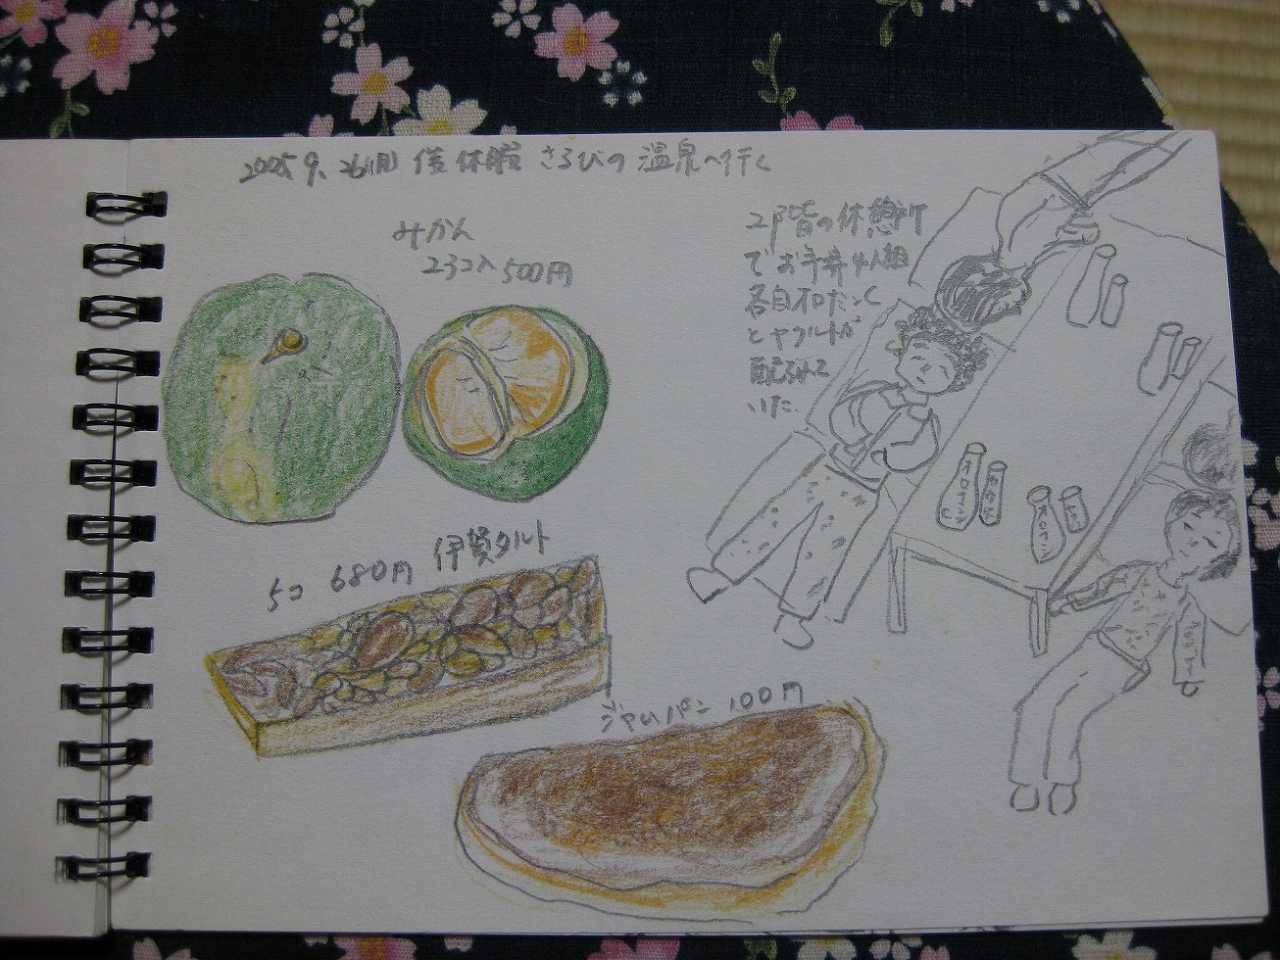 2005.9.26(月) 僕休暇 さるびの温泉へ行く
みかん
23コ入 500円
2階の休憩所
でお弁当4人組
各自オロナミンC
とヤクルトが
配られて
いた
5コ 680円 伊賀タルト
ジャムパン 100円
オロナミンC
ヤクルト
オロナミン